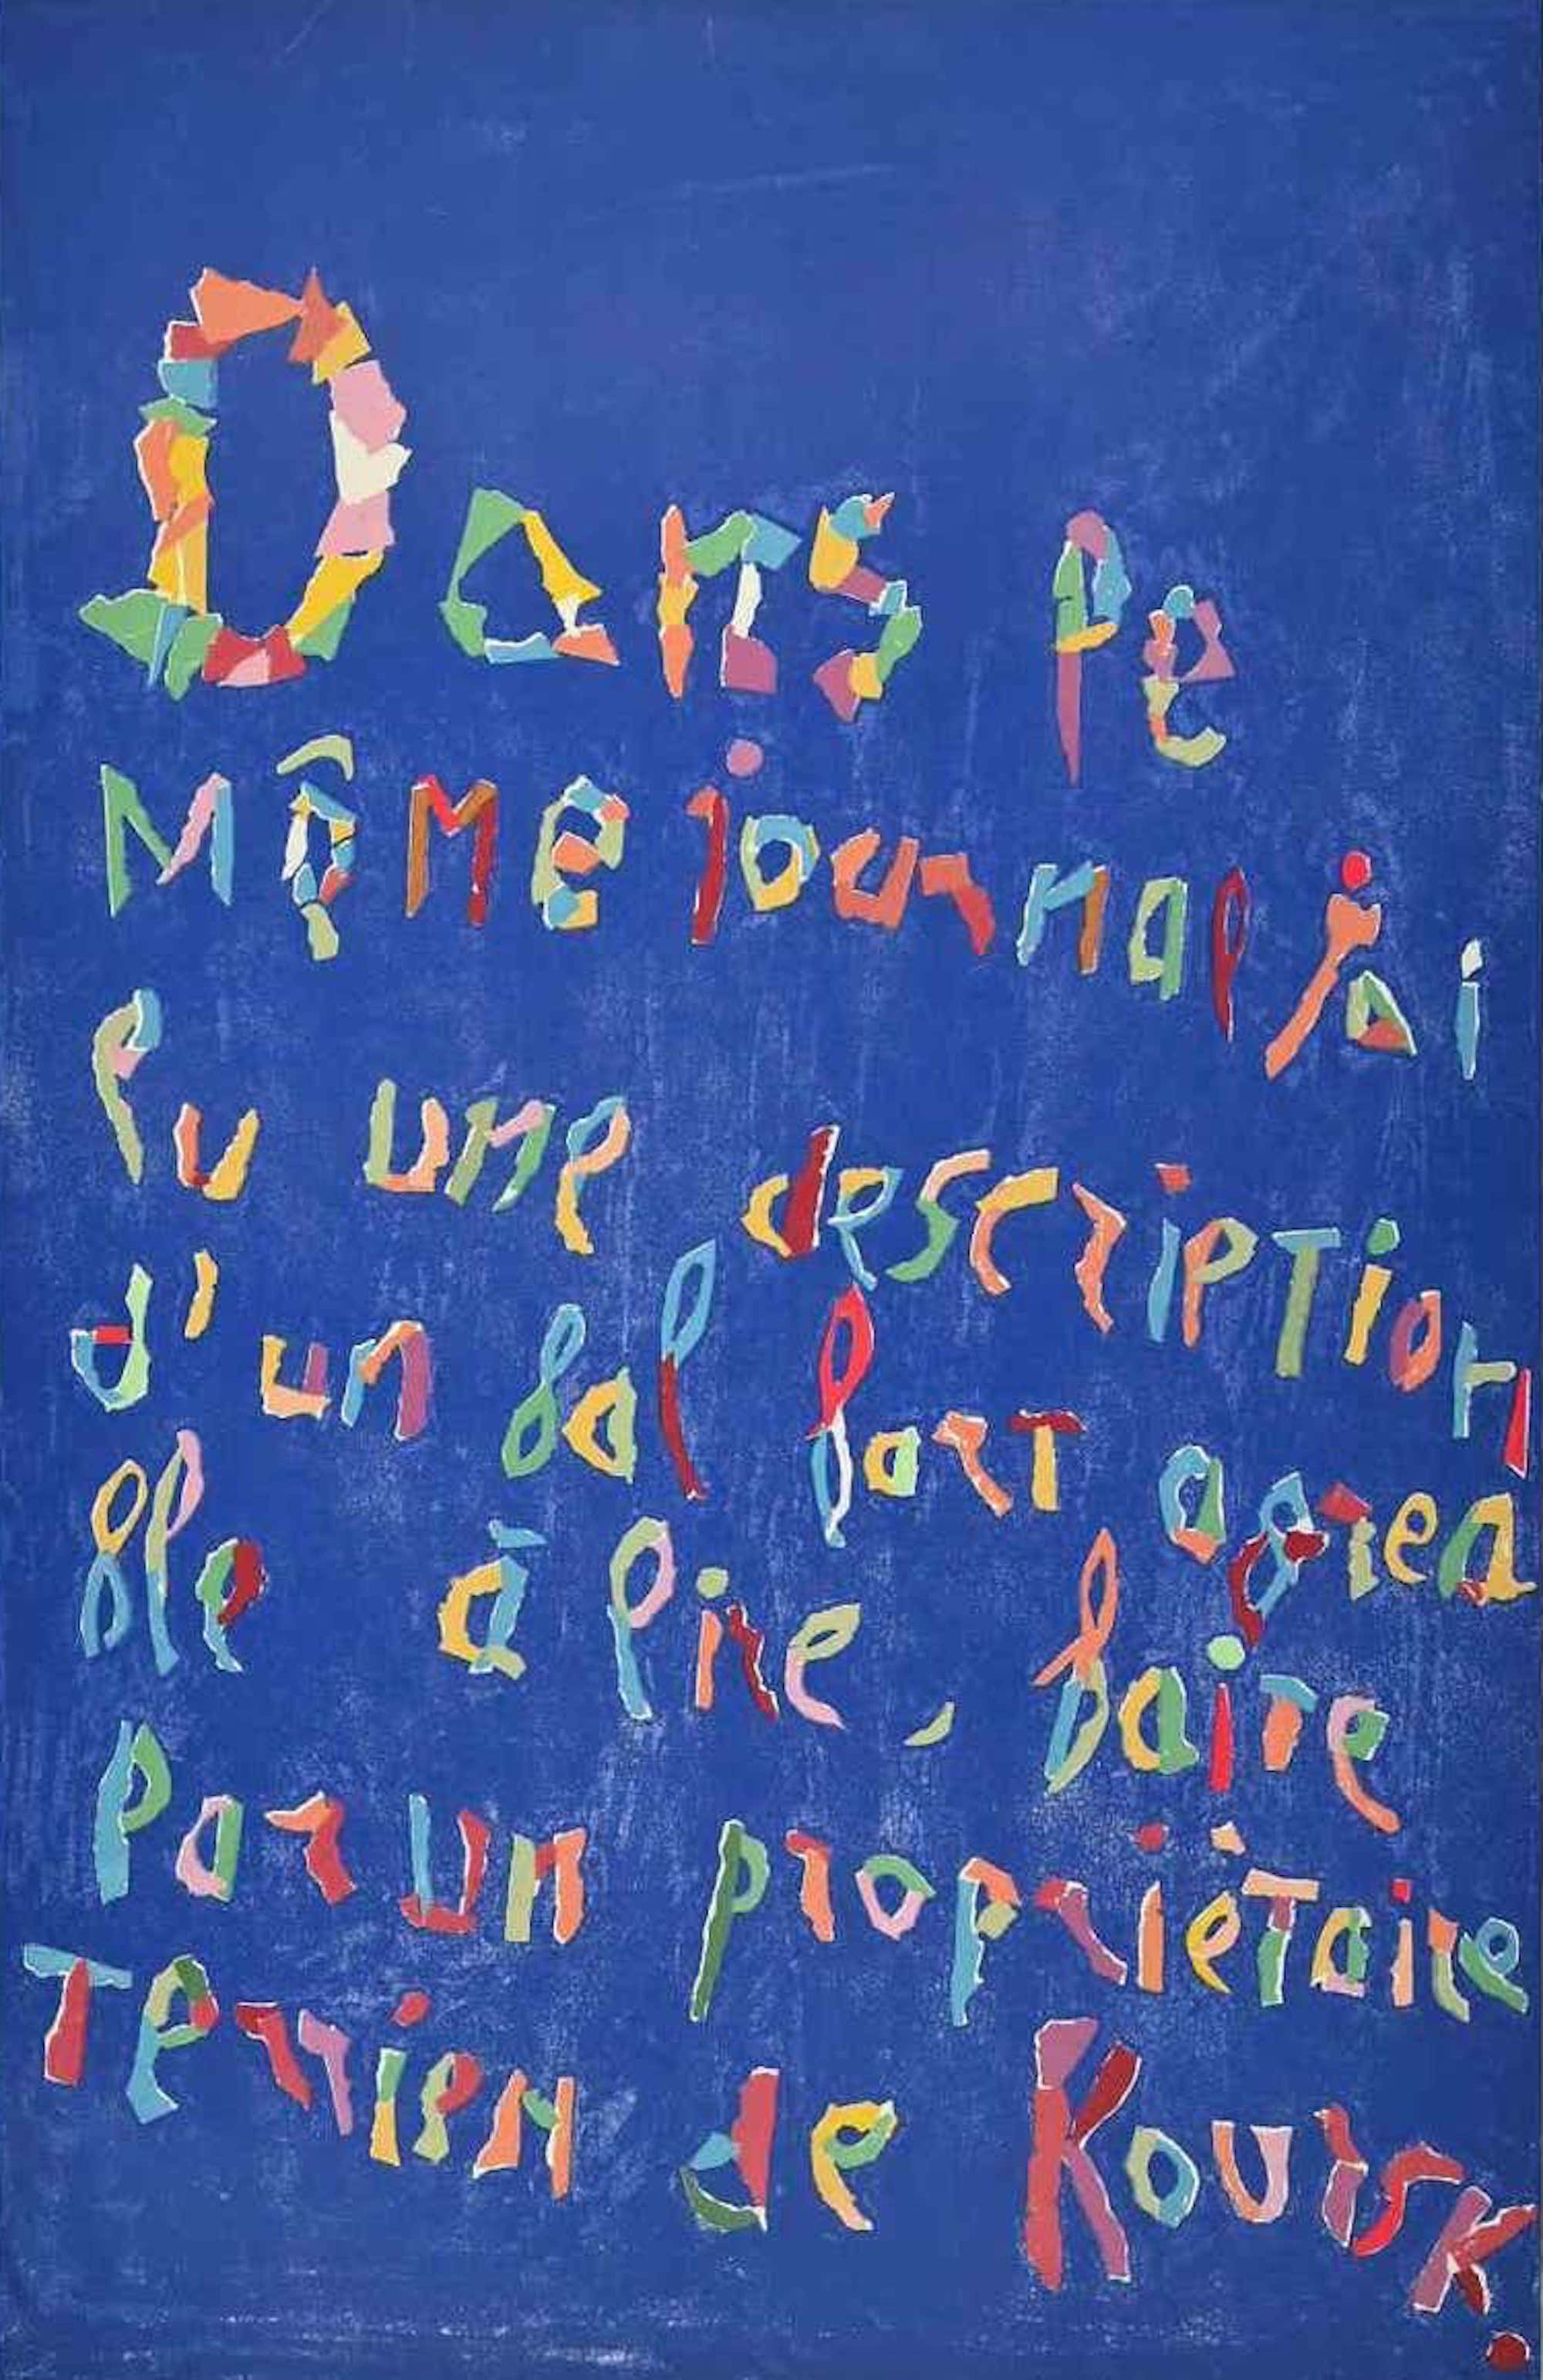 Dans le
Même journal j'ai
lu une description
d'un bal fort agréa
ble à lire, faite
Par un propriétaire
Terrien de Koursk.